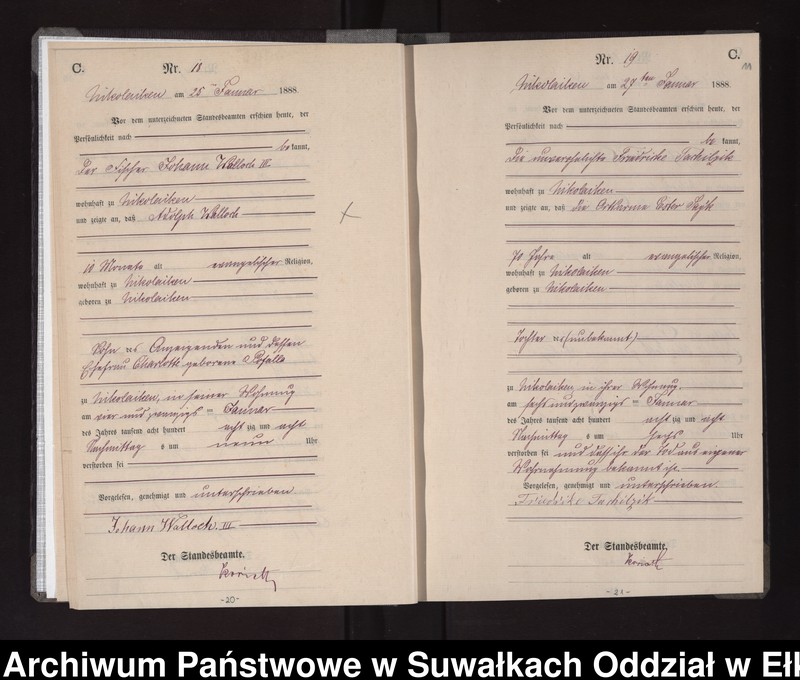 C.
Nr. 18
Nikolaiken am 25 Januar 1888.
Vor dem unterzeichneten Standesbeamten erschien heute, der
Persönlichkeit nach
bekannt,
Der Fischer Johann Walloch III.
wohnhaft zu Nikolaiken
und zeigte an, daß Adolph Walloch
10 Monate alt evangelischer Religion,
wohnhaft zu Nikolaiken
geboren zu Nikolaiken
Sohn des Anzeigenden und dessen
Ehefrau Charlotte geborene
zu Nikolaiken, in seiner Wohnung
am vier und zwanzigs ten Januar
des Jahres tausend acht hundert acht zig und acht
Nachmittag s um neun Uhr
verstorben sei
Vorgelesen, genehmigt und unterschrieben.
Johann Walloch III
Der Standesbeamte.
-20-
C.
Nr. 19
Nikolaiken am 27 ten Januar 1888.
Vor dem unterzeichneten Standesbeamten erschien heute, der
Persönlichkeit nach
bekannt,
Die unverehelichte Friedricke
wohnhaft zu Nikolaiken
und zeigte an, daß die Ortsarme Ester
70 Jahre alt evangelischer Religion,
wohnhaft zu Nikolaiken
geboren zu Nikolaiken
Tochter des (unbekannt)
zu Nikolaiken, in ihrer Wohnung
am sechs und zwanzigs ten Januar
des Jahres tausend acht hundert acht zig und acht
Nachmittag s um sechs Uhr
verstorben sei und daß ihr der Tod aus eigener
Wahrnehmung bekannt ist.
Vorgelesen, genehmigt und unterschrieben.
Friedricke
Der Standesbeamte.
-21-
Archiwum Państwowe w Suwałkach Oddział w Ełk